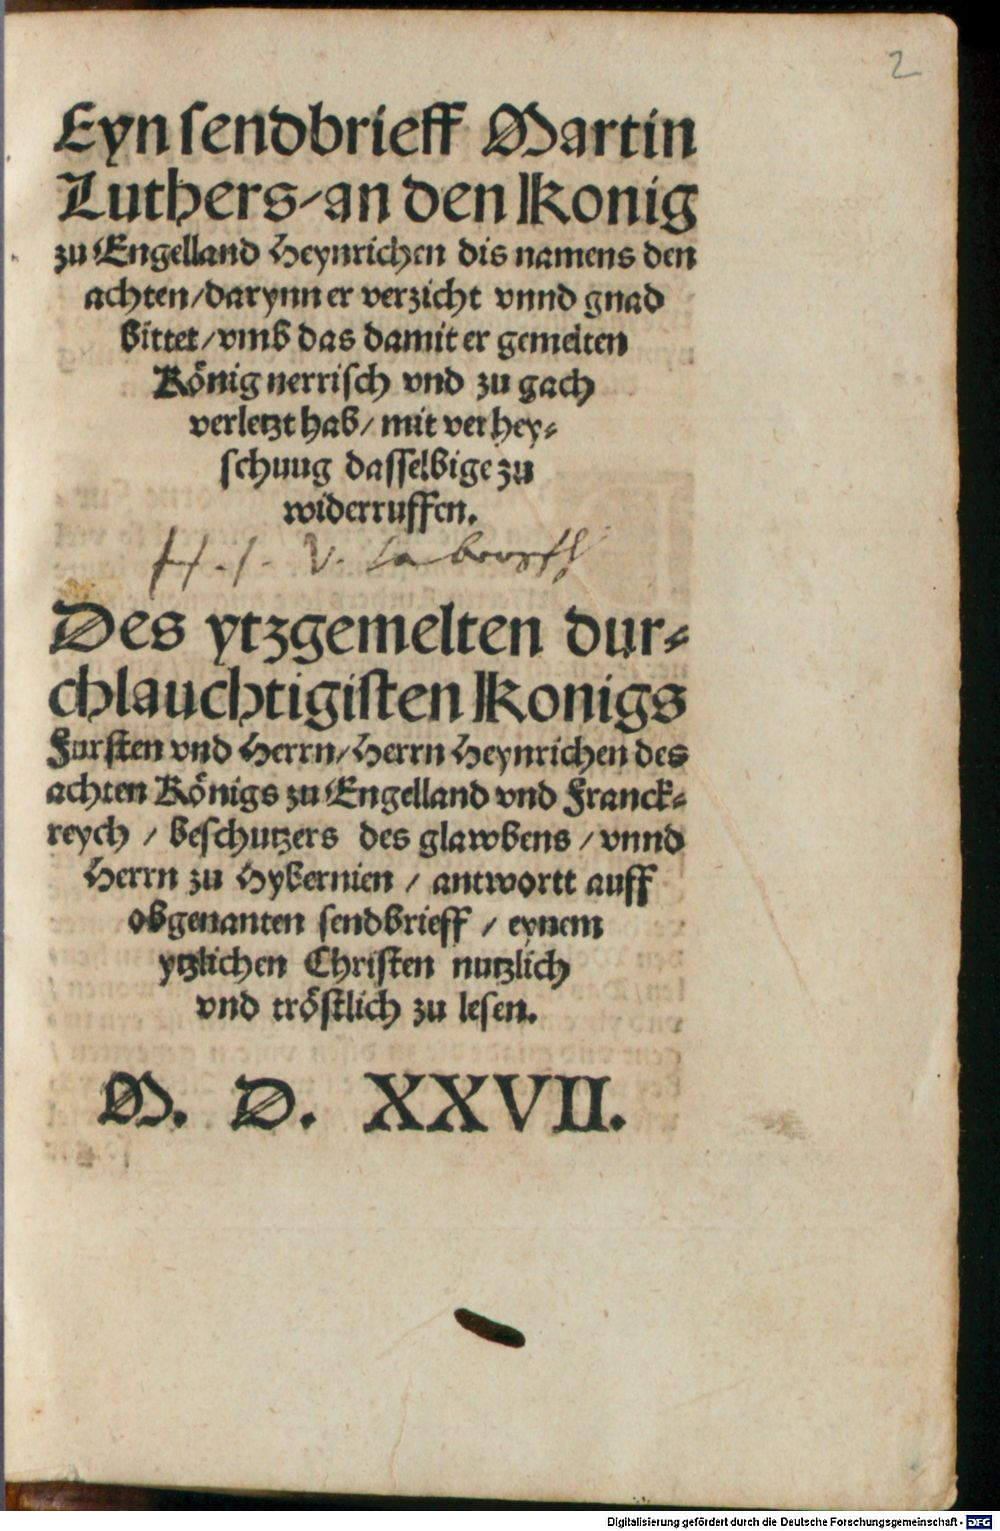 2
Eyn sendbrieff Martin
Luthers/an den Konig
zu Engelland Heynrichen dis namens den
achten/darynn er verzicht vnnd gnad
bittet/vmb das damit er gemelten
König nerrisch vnd zu gach
verletzt hab/ mit verhey-
schung dasselbige zu
widerruffen.
Des ytzgemelten dur-
chlauchtigisten Konigs
Fursten vnd Herrn/Herrn Heynrichen des
achten Königs zu Engelland vnd Franck-
reych / beschutzers des glawbens / vnnd
Herrn zu Hybernien / antwortt auff
obgenanten sendbrieff / eynem
ytzlichen Christen nutzlich
vnd tröstlich zu lesen.
M. D. XXVII.
Digitalisierung gefördert durch die Deutsche Forschungsgemeinschaft - DFG